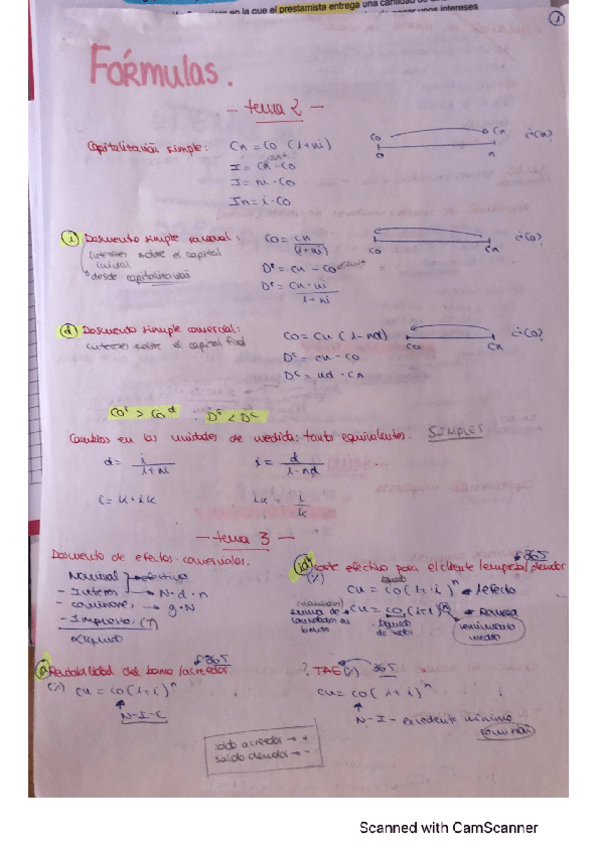 en la que el prestamista entrega una cantidad
unos intereses
1
Fórmulas.
- tema 2 -
Capitalización simple: Cn = Co (1+ni)
I = Cn - Co
I = ni · Co
In = i · Co
Co Cn ¿Cn?
o n
i Descuento simple racional: Co = Cn / (1+ni)
intereses sobre el capital inicial
desde capitalización
Dr = Cn - Co
Dr = Cn · ni / 1+ni
Co Cn ¿Co?
d Descuento simple comercial: Co = Cn (1-nd)
intereses sobre el capital final
Dc = Cn - Co
Dc = nd · Cn
Co Cn ¿Co?
Co r > Co d : Dr < Dc
Cambios en las unidades de medida: tanto equivalentes. SIMPLES
d = i / 1+ni i = d / 1-nd
i = k · ik ik = i / k
- tema 3 -
Descuento de efectos comerciales.
Nominal efectivo
- Interes N · d · n
- comisiones g · N
- Impuestos (T)
Líquido
id Coste efectivo para el cliente/empresa/deudor 365
(%)
Cn = Co (1+i)^n efecto
líquido
suma de Cn = Co (1+i)^n Remesa
nominales
líquido
vencimiento medio
a Rentabilidad del banco/acreedor 365
(%) Cn = Co (1+i)^n
N-I-C
? TAE(%) 365
Cn = Co (1+i)^n
N-I-
mínimo
saldo acreedor → +
saldo deudor → -
Scanned with CamScanner